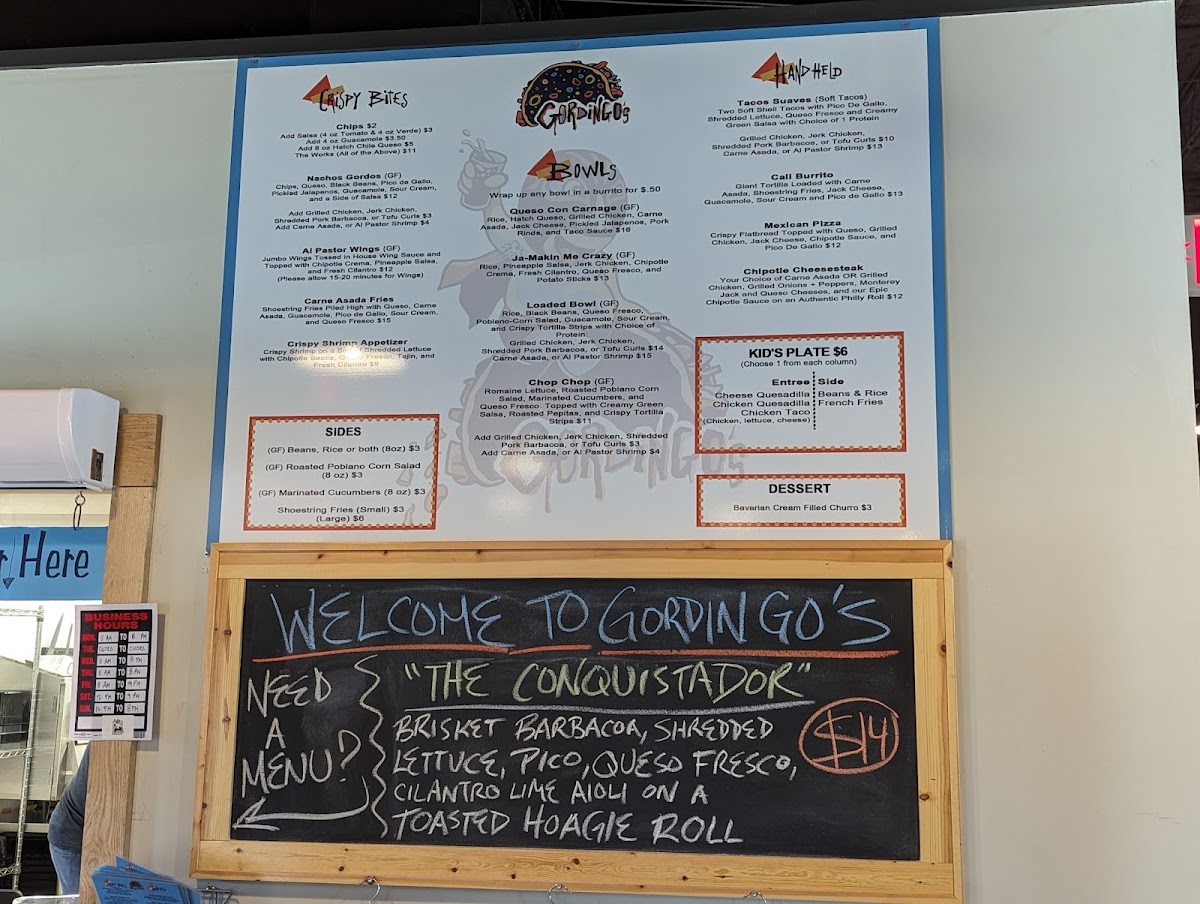 CRISPY BITES
Chips $2
Add Salsa (4 oz Tomato & 4 oz Verde) $3
Add 4 oz Guacamole $3.50
Add 8 oz Hatch Chile Queso $5
The Works (All of the Above) $11
Nachos Gordos (GF)
Chips, Queso, Black Beans, Pico de Gallo,
Pickled Jalapenos, Guacamole, Sour Cream,
and a Side of Salsa $12
Add Grilled Chicken, Jerk Chicken,
Shredded Pork Barbacoa, or Tofu Curls $3
Add Carne Asada, or Al Pastor Shrimp $4
Al Pastor Wings (GF)
Jumbo Wings Tossed in House Wing Sauce and
Topped with Chipotle Crema, Pineapple Salsa,
and Fresh Cilantro $12
(Please allow 15-20 minutes for Wings)
Carne Asada Fries
Shoestring Fries Piled High with Queso, Carne
Asada, Guacamole, Pico de Gallo, Sour Cream,
and Queso Fresco $15
Crispy Shrimp Appetizer
Crispy Shrimp on a Bed of Shredded Lettuce
with Chipotle Sauce, Queso Fresco, Tajin, and
Fresh Cilantro $9
SIDES
(GF) Beans, Rice or both (8oz) $3
(GF) Roasted Poblano Corn Salad
(8 oz) $3
(GF) Marinated Cucumbers (8 oz) $3
Shoestring Fries (Small) $3
(Large) $6
GORDINGO'S
BOWLS
Wrap up any bowl in a burrito for $.50
Queso Con Carnage (GF)
Rice, Hatch Queso, Grilled Chicken, Carne
Asada, Jack Cheese, Pickled Jalapenos, Pork
Rinds, and Taco Sauce $16
Ja-Makin Me Crazy (GF)
Rice, Pineapple Salsa, Jerk Chicken, Chipotle
Crema, Fresh Cilantro, Queso Fresco, and
Potato Sticks $13
Loaded Bowl (GF)
Rice, Black Beans, Queso Fresco,
Poblano-Corn Salad, Guacamole, Sour Cream,
and Crispy Tortilla Strips with Choice of
Protein:
Grilled Chicken, Jerk Chicken,
Shredded Pork Barbacoa, or Tofu Curls $14
Carne Asada, or Al Pastor Shrimp $15
Chop Chop (GF)
Romaine Lettuce, Roasted Poblano Corn
Salad, Marinated Cucumbers, and
Queso Fresco. Topped with Creamy Green
Salsa, Roasted Pepitas, and Crispy Tortilla
Strips $11
Add Grilled Chicken, Jerk Chicken, Shredded
Pork Barbacoa, or Tofu Curls $3
Add Carne Asada, or Al Pastor Shrimp $4
GORDINGO'S
HAND HELD
Tacos Suaves (Soft Tacos)
Two Soft Shell Tacos with Pico De Gallo,
Shredded Lettuce, Queso Fresco and Creamy
Green Salsa with Choice of 1 Protein
Grilled Chicken, Jerk Chicken,
Shredded Pork Barbacoa, or Tofu Curls $10
Carne Asada, or Al Pastor Shrimp $13
Cali Burrito
Giant Tortilla Loaded with Carne
Asada, Shoestring Fries, Jack Cheese,
Guacamole, Sour Cream and Pico de Gallo $13
Mexican Pizza
Crispy Flatbread Topped with Queso, Grilled
Chicken, Jack Cheese, Chipotle Sauce, and
Pico De Gallo $12
Chipotle Cheesesteak
Your Choice of Carne Asada OR Grilled
Chicken, Grilled Onions + Peppers, Monterey
Jack and Queso Cheeses, and our Epic
Chipotle Sauce on an Authentic Philly Roll $12
KID'S PLATE $6
(Choose 1 from each column)
Entree Side
Cheese Quesadilla Beans & Rice
Chicken Quesadilla French Fries
Chicken Taco
(Chicken, lettuce, cheese)
DESSERT
Bavarian Cream Filled Churro $3
r Here
BUSINESS
HOURS
MON. 11 AM TO 8 PM
TUE. CLOSED TO CLOSED
WED. 11 AM TO 8 PM
THU. 11 AM TO 8 PM
FRI. 11 AM TO 9 PM
SAT. 12 PM TO 9 PM
SUN. 12 PM TO 8 PM
WELCOME TO GORDINGO'S
NEED
A
MENU?
"THE CONQUISTADOR"
BRISKET BARBACOA, SHREDDED
LETTUCE, PICO, QUESO FRESCO,
CILANTRO LIME AIOLI ON A
TOASTED HOAGIE ROLL
$14